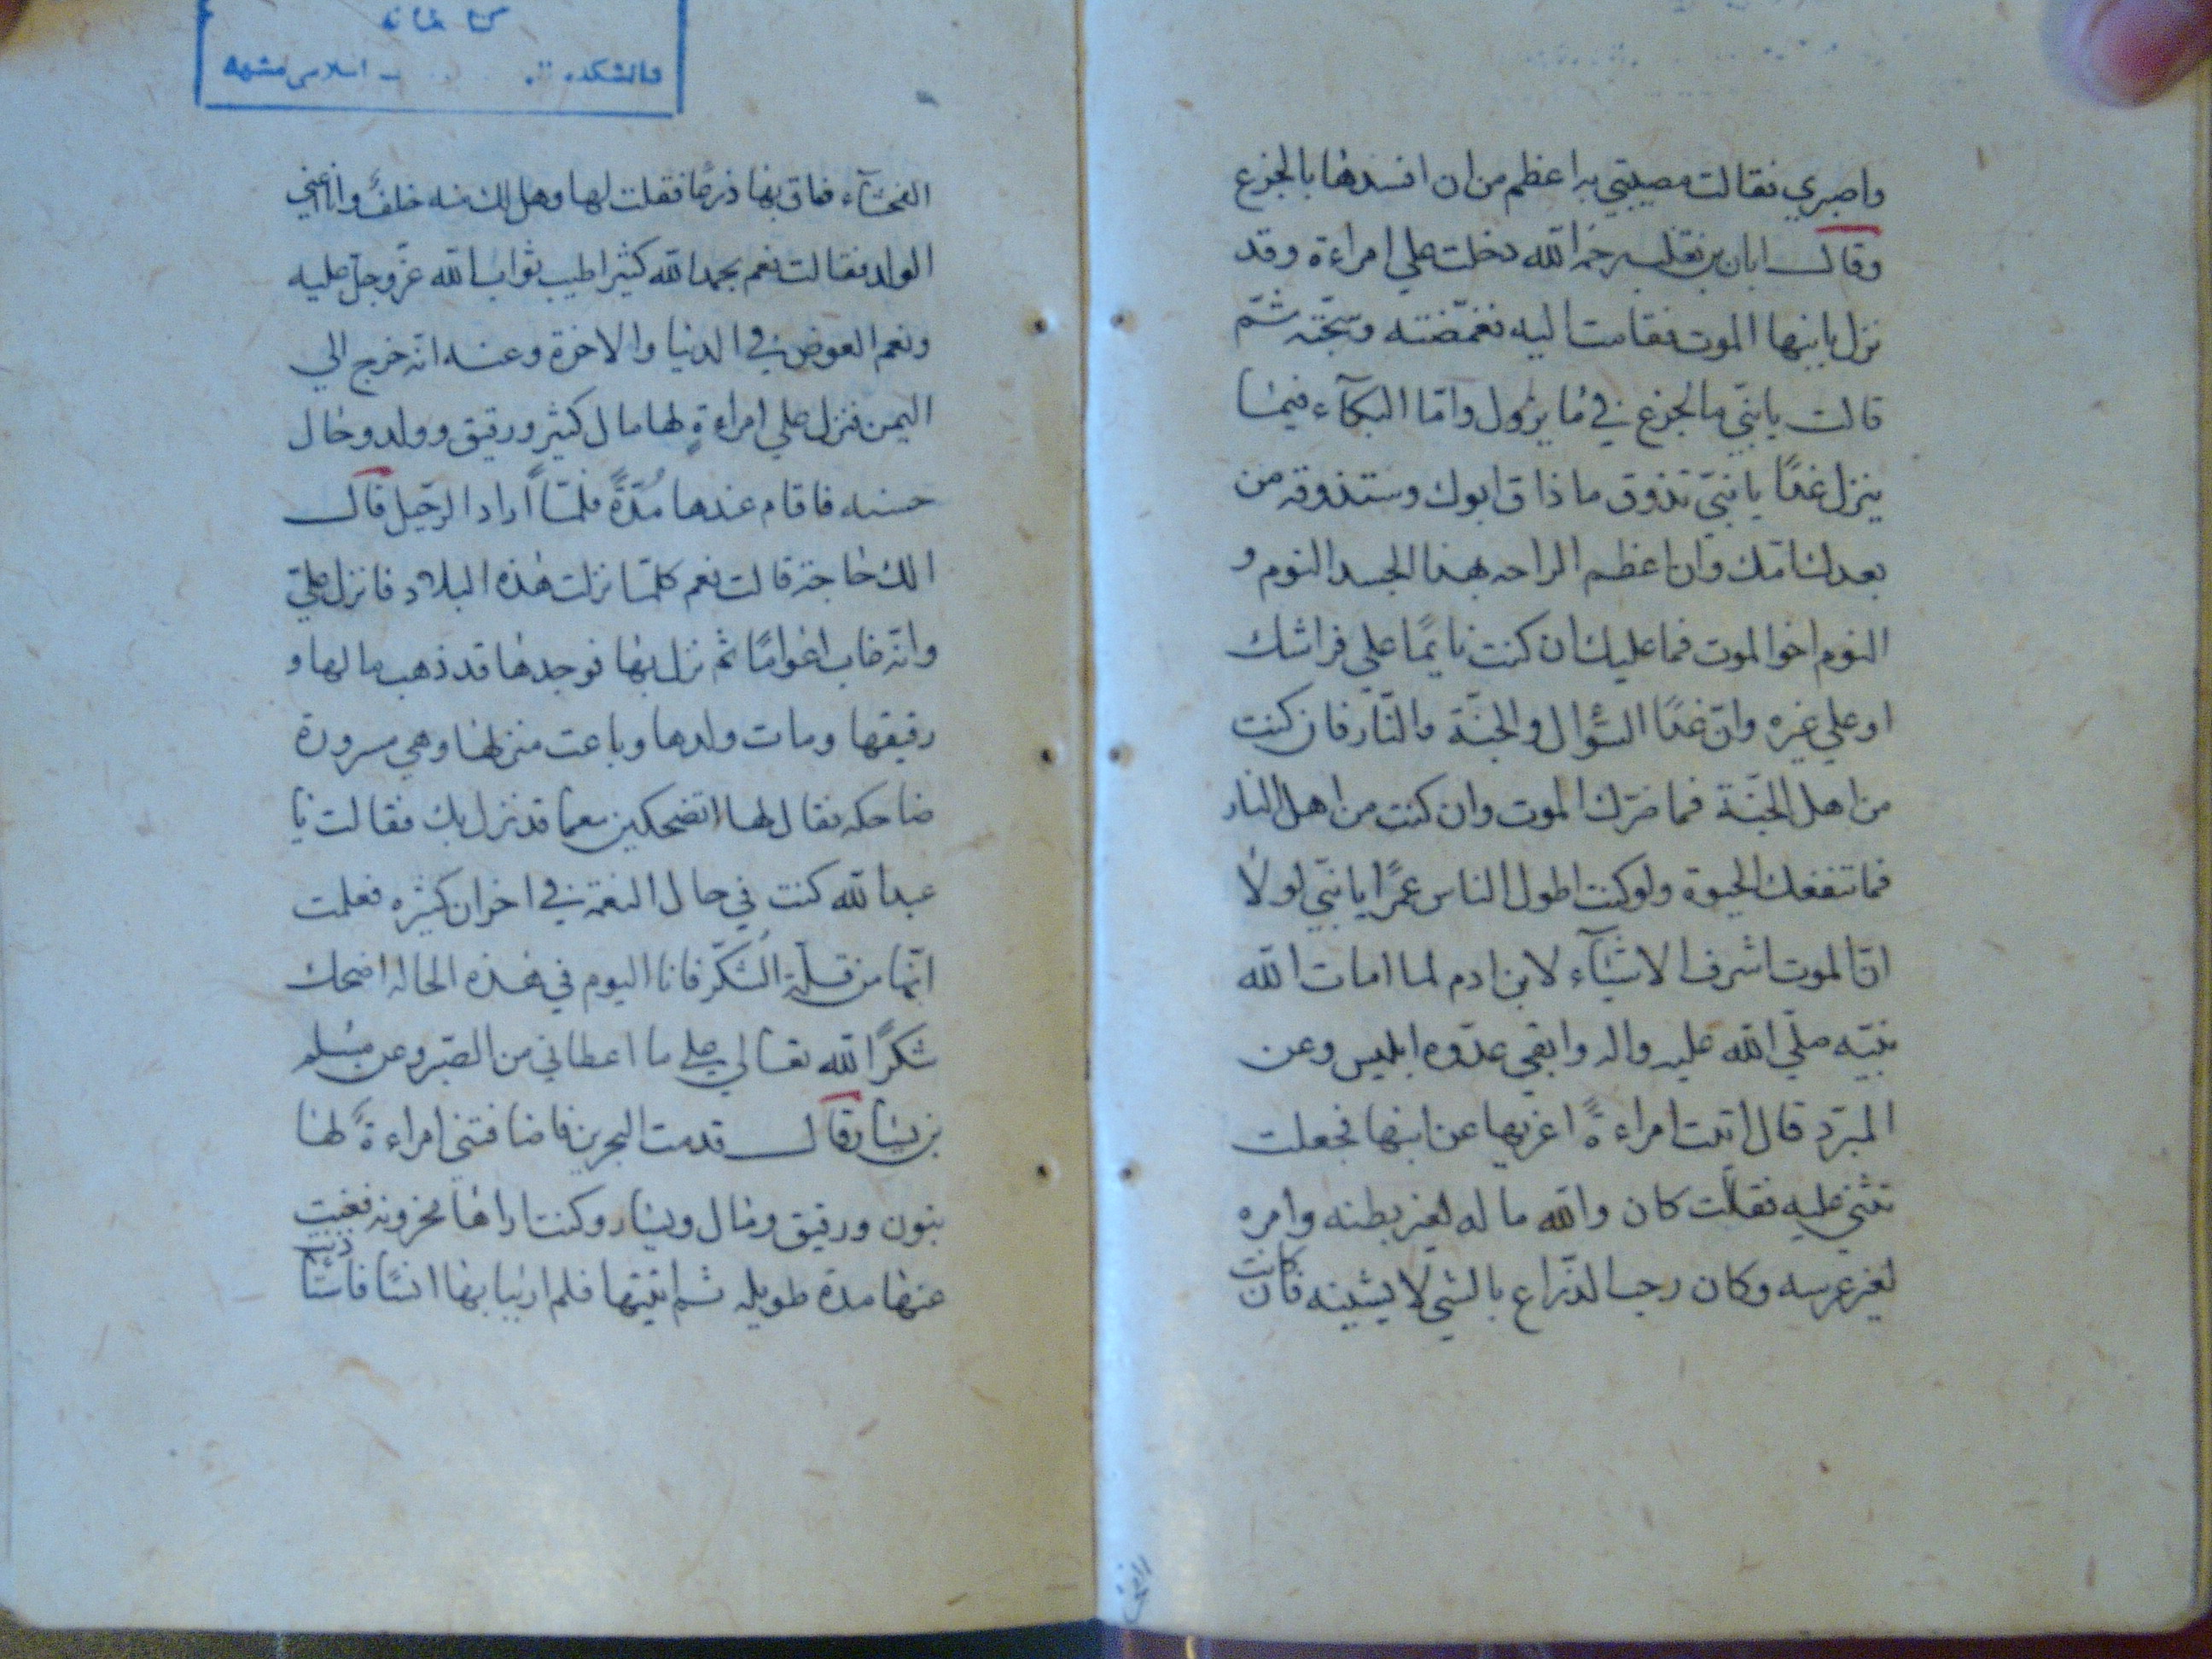 واصبري فقالت مصيبتي به اعظم من ان افسدها بالجزع
وقال ابان بن تغلب رحمه الله دخلت علي امراءة وقد
نزل بابنها الموت فقامت اليه فغمّضته وسجّته ثمّ
قالت يا بنيّ ما الجزع في ما يزول وامّا البكآء فيما
ينزل غدًا يا بنيّ تذوق ما ذاق ابوك وستذوقه من
بعدك امّك وانّ اعظم الراحه بهذا الجسد النوم و
النوم اخو الموت فما عليك ان كنت نايمًا علي فراشك
او علي غيره وانّ غدًا السّؤال والجنّة والنّار فان كنت
من اهل الجنّة فما ضرّك الموت وان كنت من اهل النار
فما تنفعك الحيوة ولو كنت اطول الناس عمرًا يا بنيّ لو لا
انّ الموت اشرف الاشيآء لابن ادم لما امات الله
نبيّه صلّي الله عليه واله وابقي عدّوه ابليس وعن
المبرّد قال اتيت امراءةً اعزيها عن ابنها فجعلت
تثني عليه فقالت كان والله ماله لغير بطنه وامره
لغير عرسه وكان رحب الذّراع بالتي لا يشينه فان كانت
كتابخانه
دانشكده - اسلامى مشهد
الفحشآء ضاق بها ذرعًا فقلت لها وهل لك منه خلفٌ وانا اعني
الولد فقالت نعم بحمد الله كثير اطيب ثواب الله عزّ وجلّ عليه
ونعم العوض في الدنيا والاخرة وعنه انّه خرج الي
اليمن فنزل علي امراءةٍ لها مال كثير ورقيق وولد وحال
حسنه فاقام عندها مُدّةً فلمّا اراد الرّحيل قال
الك حاجة قالت نعم كلمّا نزلت هذه البلاد فانزل عليّ
وانّه غاب اعوامًا ثم نزل بها فوجدها قد ذهب مالها و
رقيقها ومات ولدها وباعت منزلها وهي مسرورة
ضاحكه فقال لها اتضحكين مع ما قد نزل بك فقالت يا
عبد الله كنت في حال النعمة في احزان كثيره فعلمت
انّها من قلّة الشّكر فانا اليوم في هذه الحاله اضحك
شكرًا لله تعالي علي ما اعطاني من الصّبر وعن مسلم
بن يسار قال قدمت البحرين فاضافتني امراءةٌ لها
بنون ورقيق ومال ويسار وكنت اراها محزونه فغبت
عنها مدة طويله ثم اتيتها فلم ار ببابها انسًا فاستاذنت